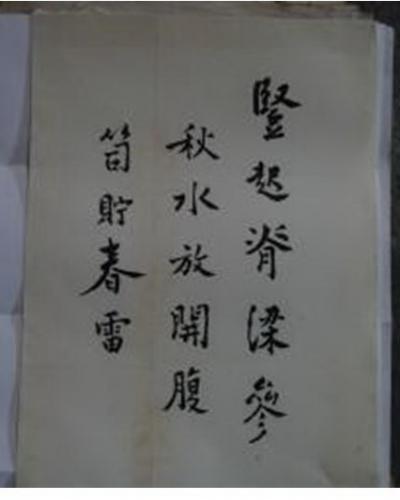 豎起脊梁參
秋水放開腹
笥貯春雷